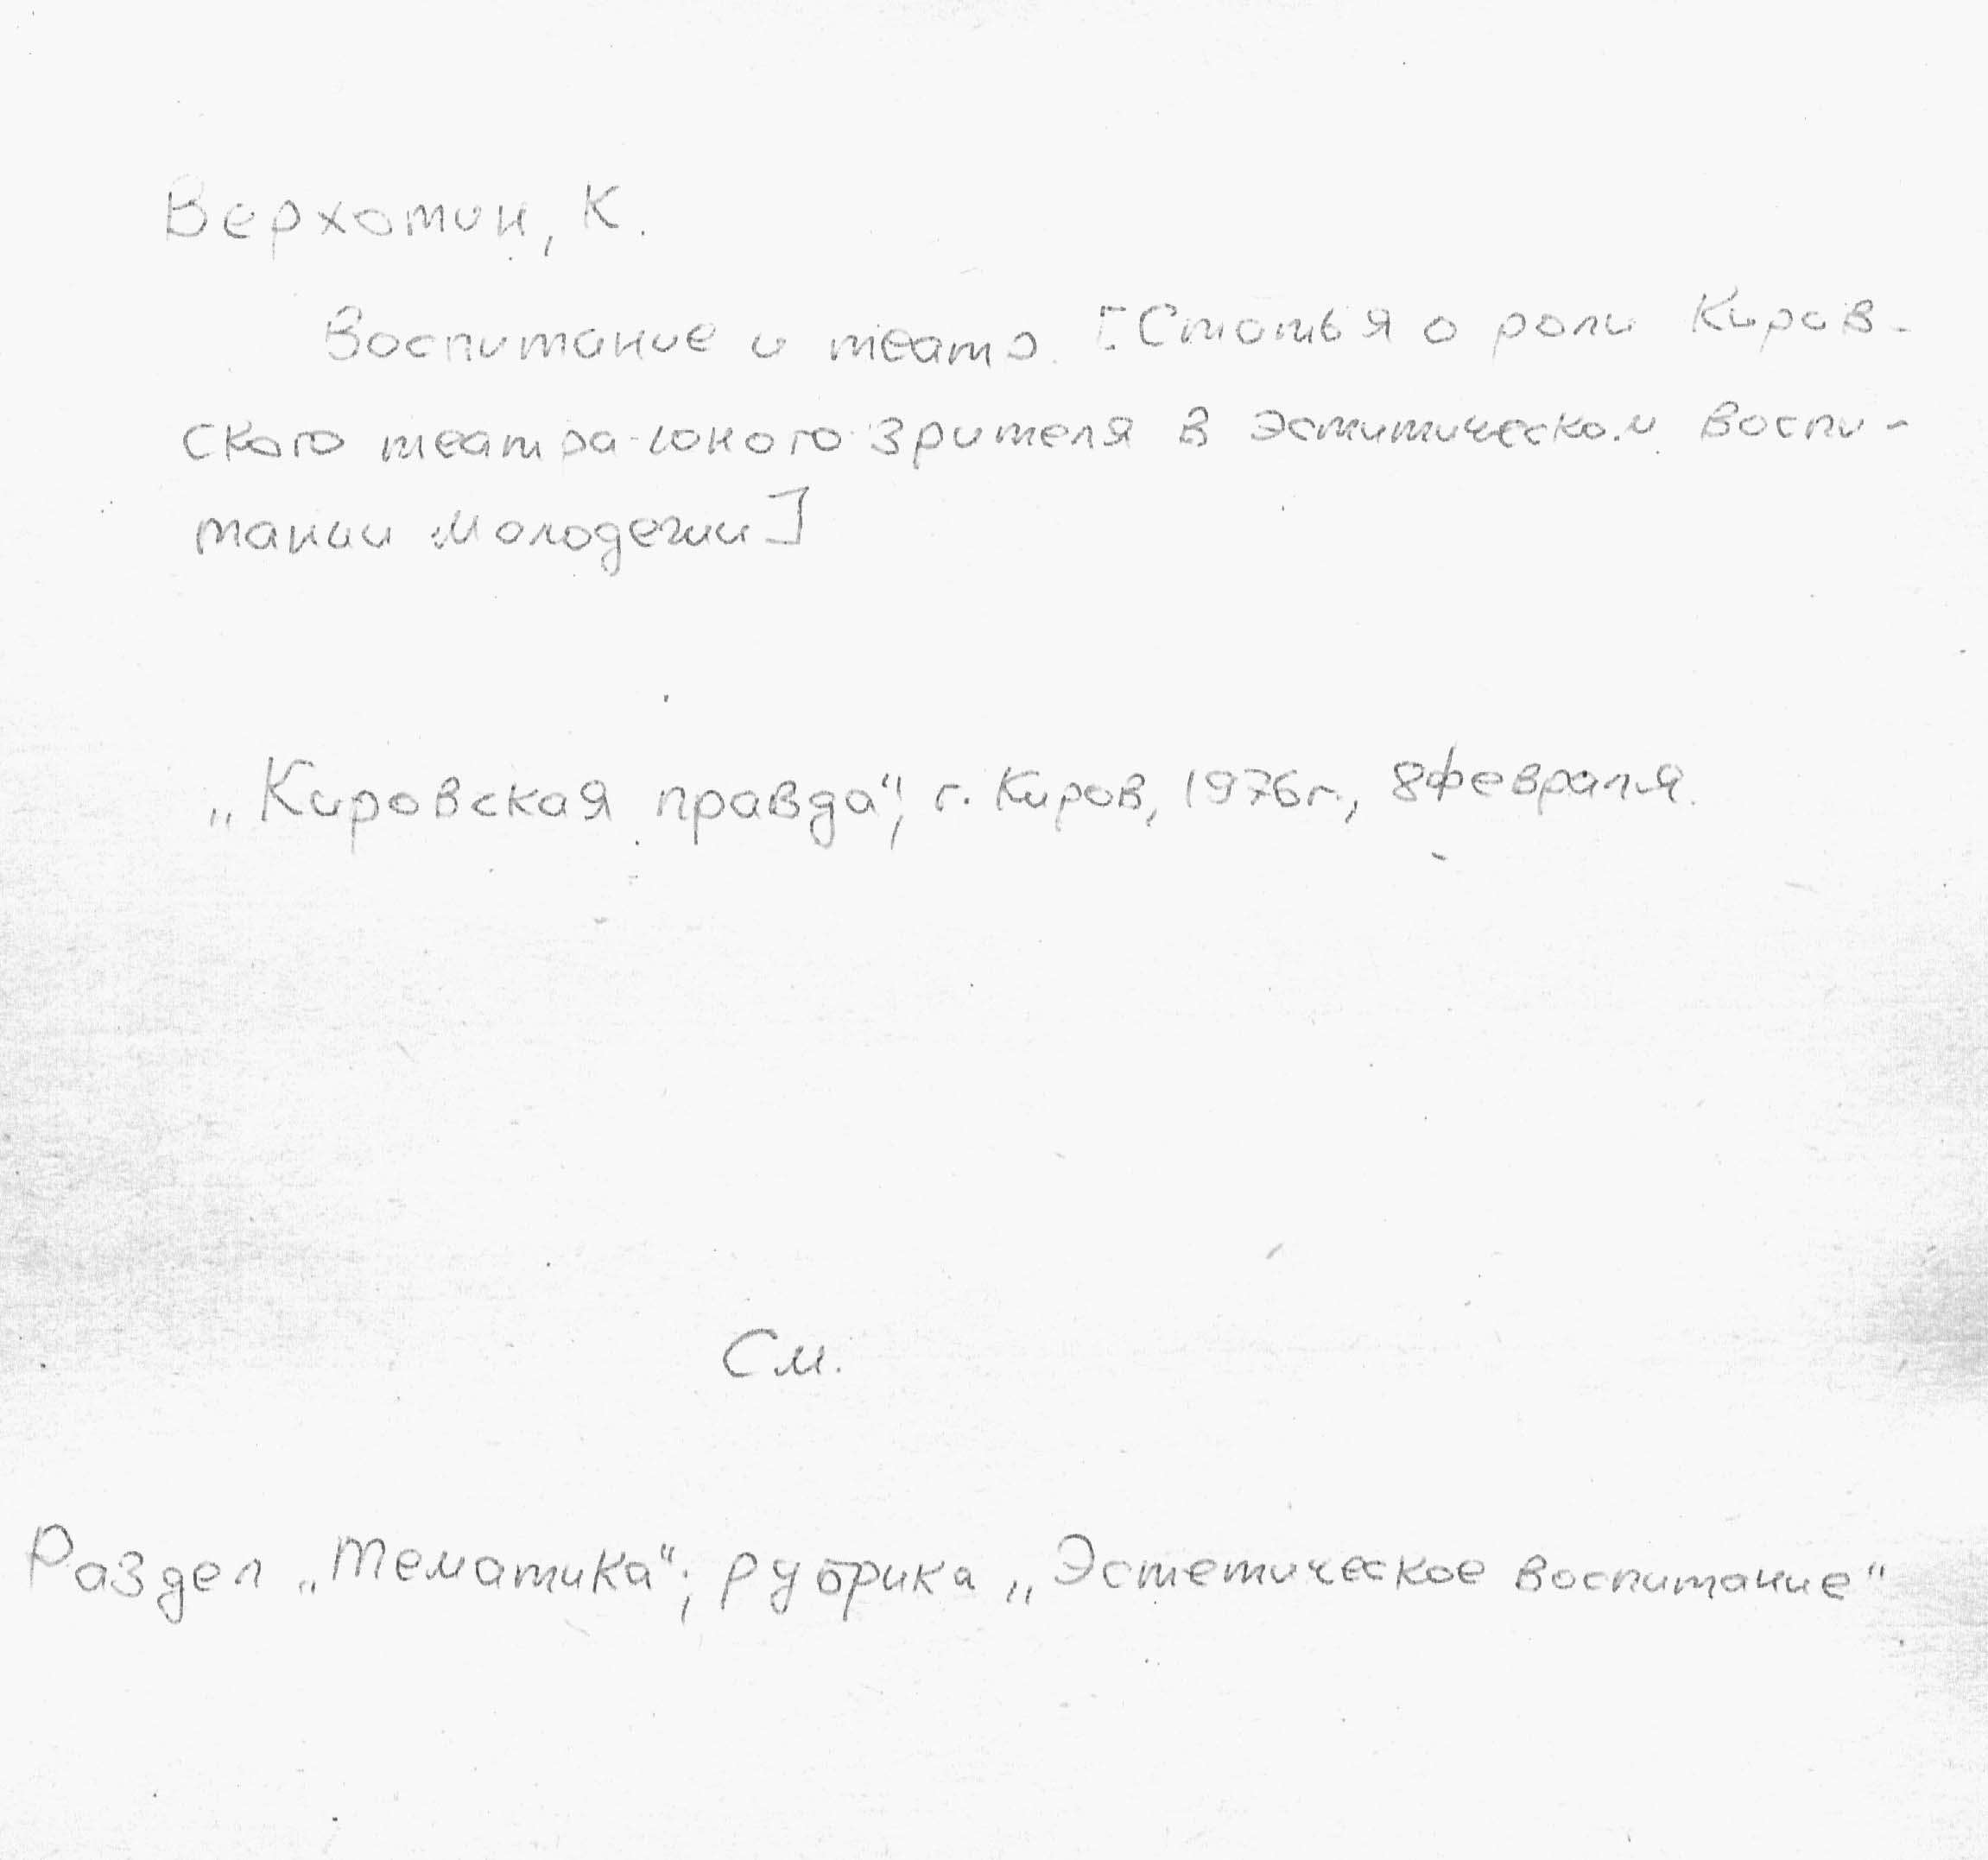 Верхотин, К.
Воспитание и театр. [Статья о роли Киров-
ского театра юного зрителя в эститическом воспи-
тании молодежи]
„Кировская правда“, г. Киров, 1976г., 8 февраля.
См.
Раздел „Тематика“; рубрика „Эстетическое воспитание“